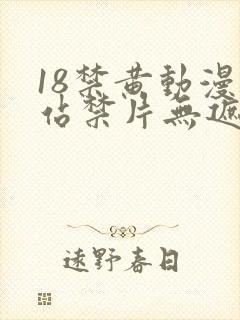 18禁黄動漫
佔禁片無遮
遠野春日